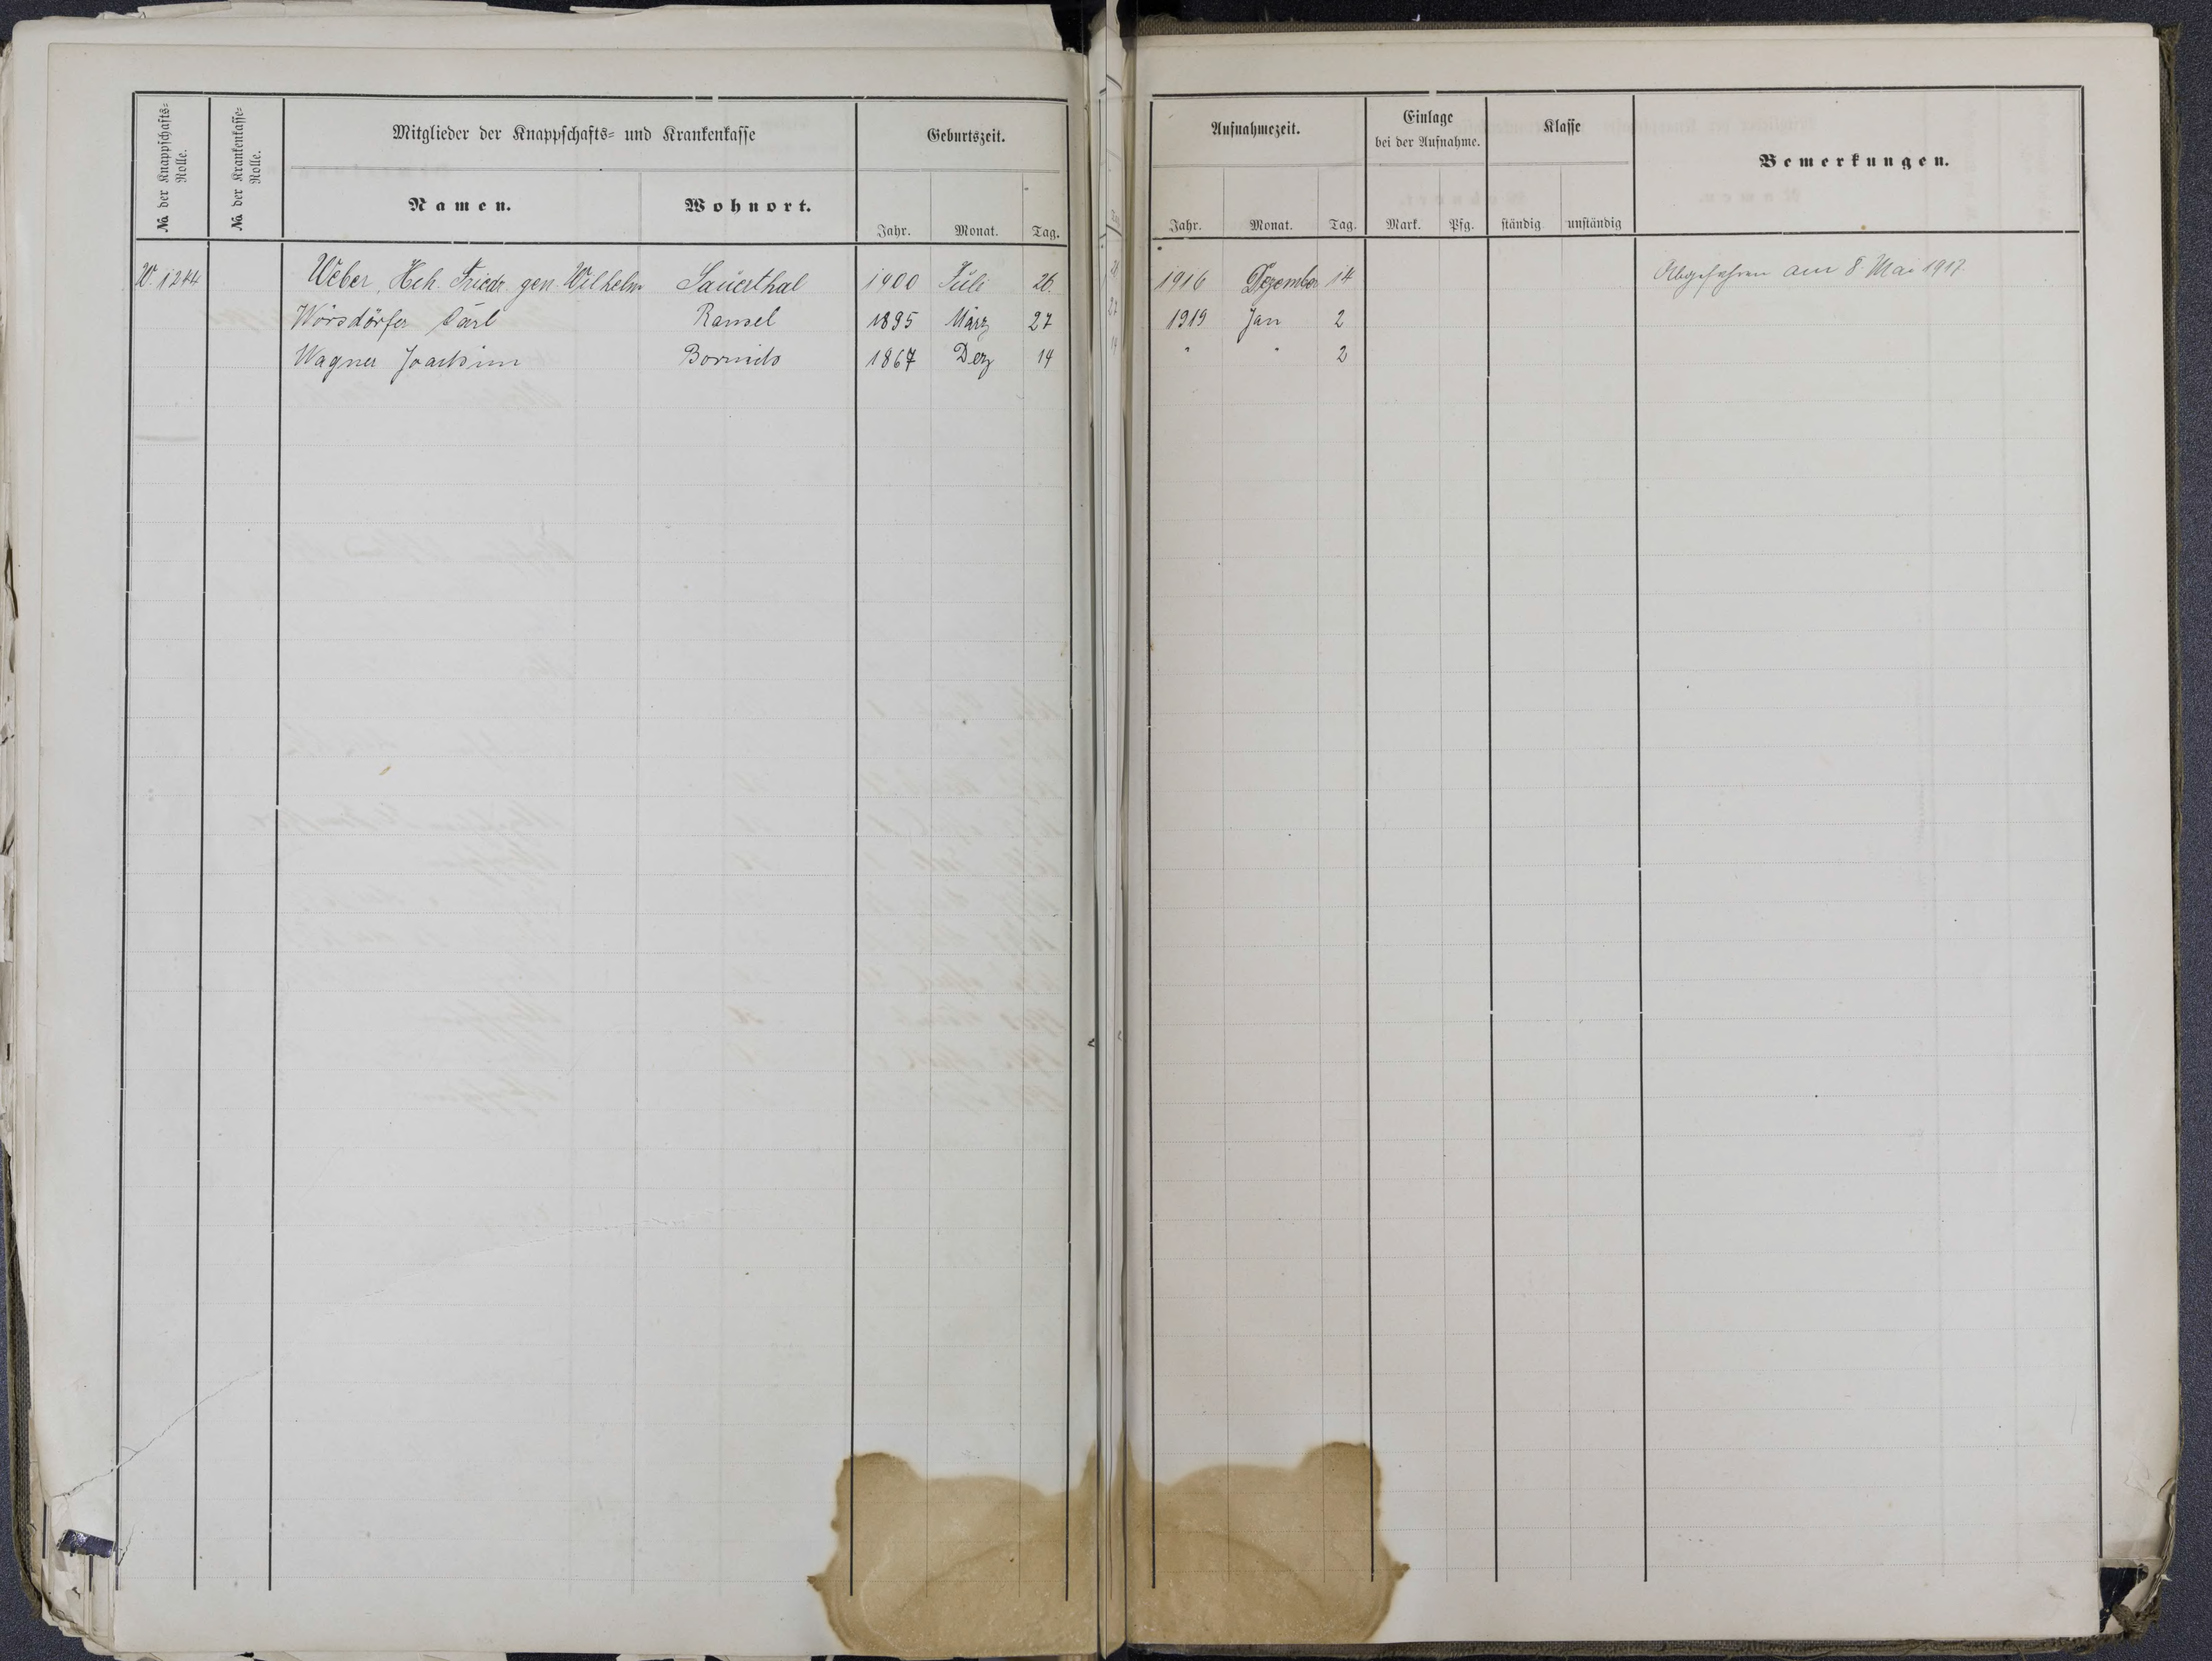 № der Knappschafts=Rolle.
№ der Krankenkasse=Rolle.
Mitglieder der Knappschafts= und Krankenkasse
Namen.
Wohnort.
Geburtszeit.
Jahr. Monat. Tag.
Aufnahmezeit.
Jahr. Monat. Tag.
Einlage
bei der Aufnahme.
Mark. Pfg.
Klasse
ständig unständig
Bemerkungen.
W. 1244 Weber, Hch. Friedr. gen. Wilhelm Sauerthal 1900 Juli 26. 1916 Dezember 14 Abgefahren am 8 Mai 1917.
Wörsdörfer Carl Ransel 1895 März 27 1919 Jan 2
Wagner Joachim Bornich 1867 Dez 14 " " 2